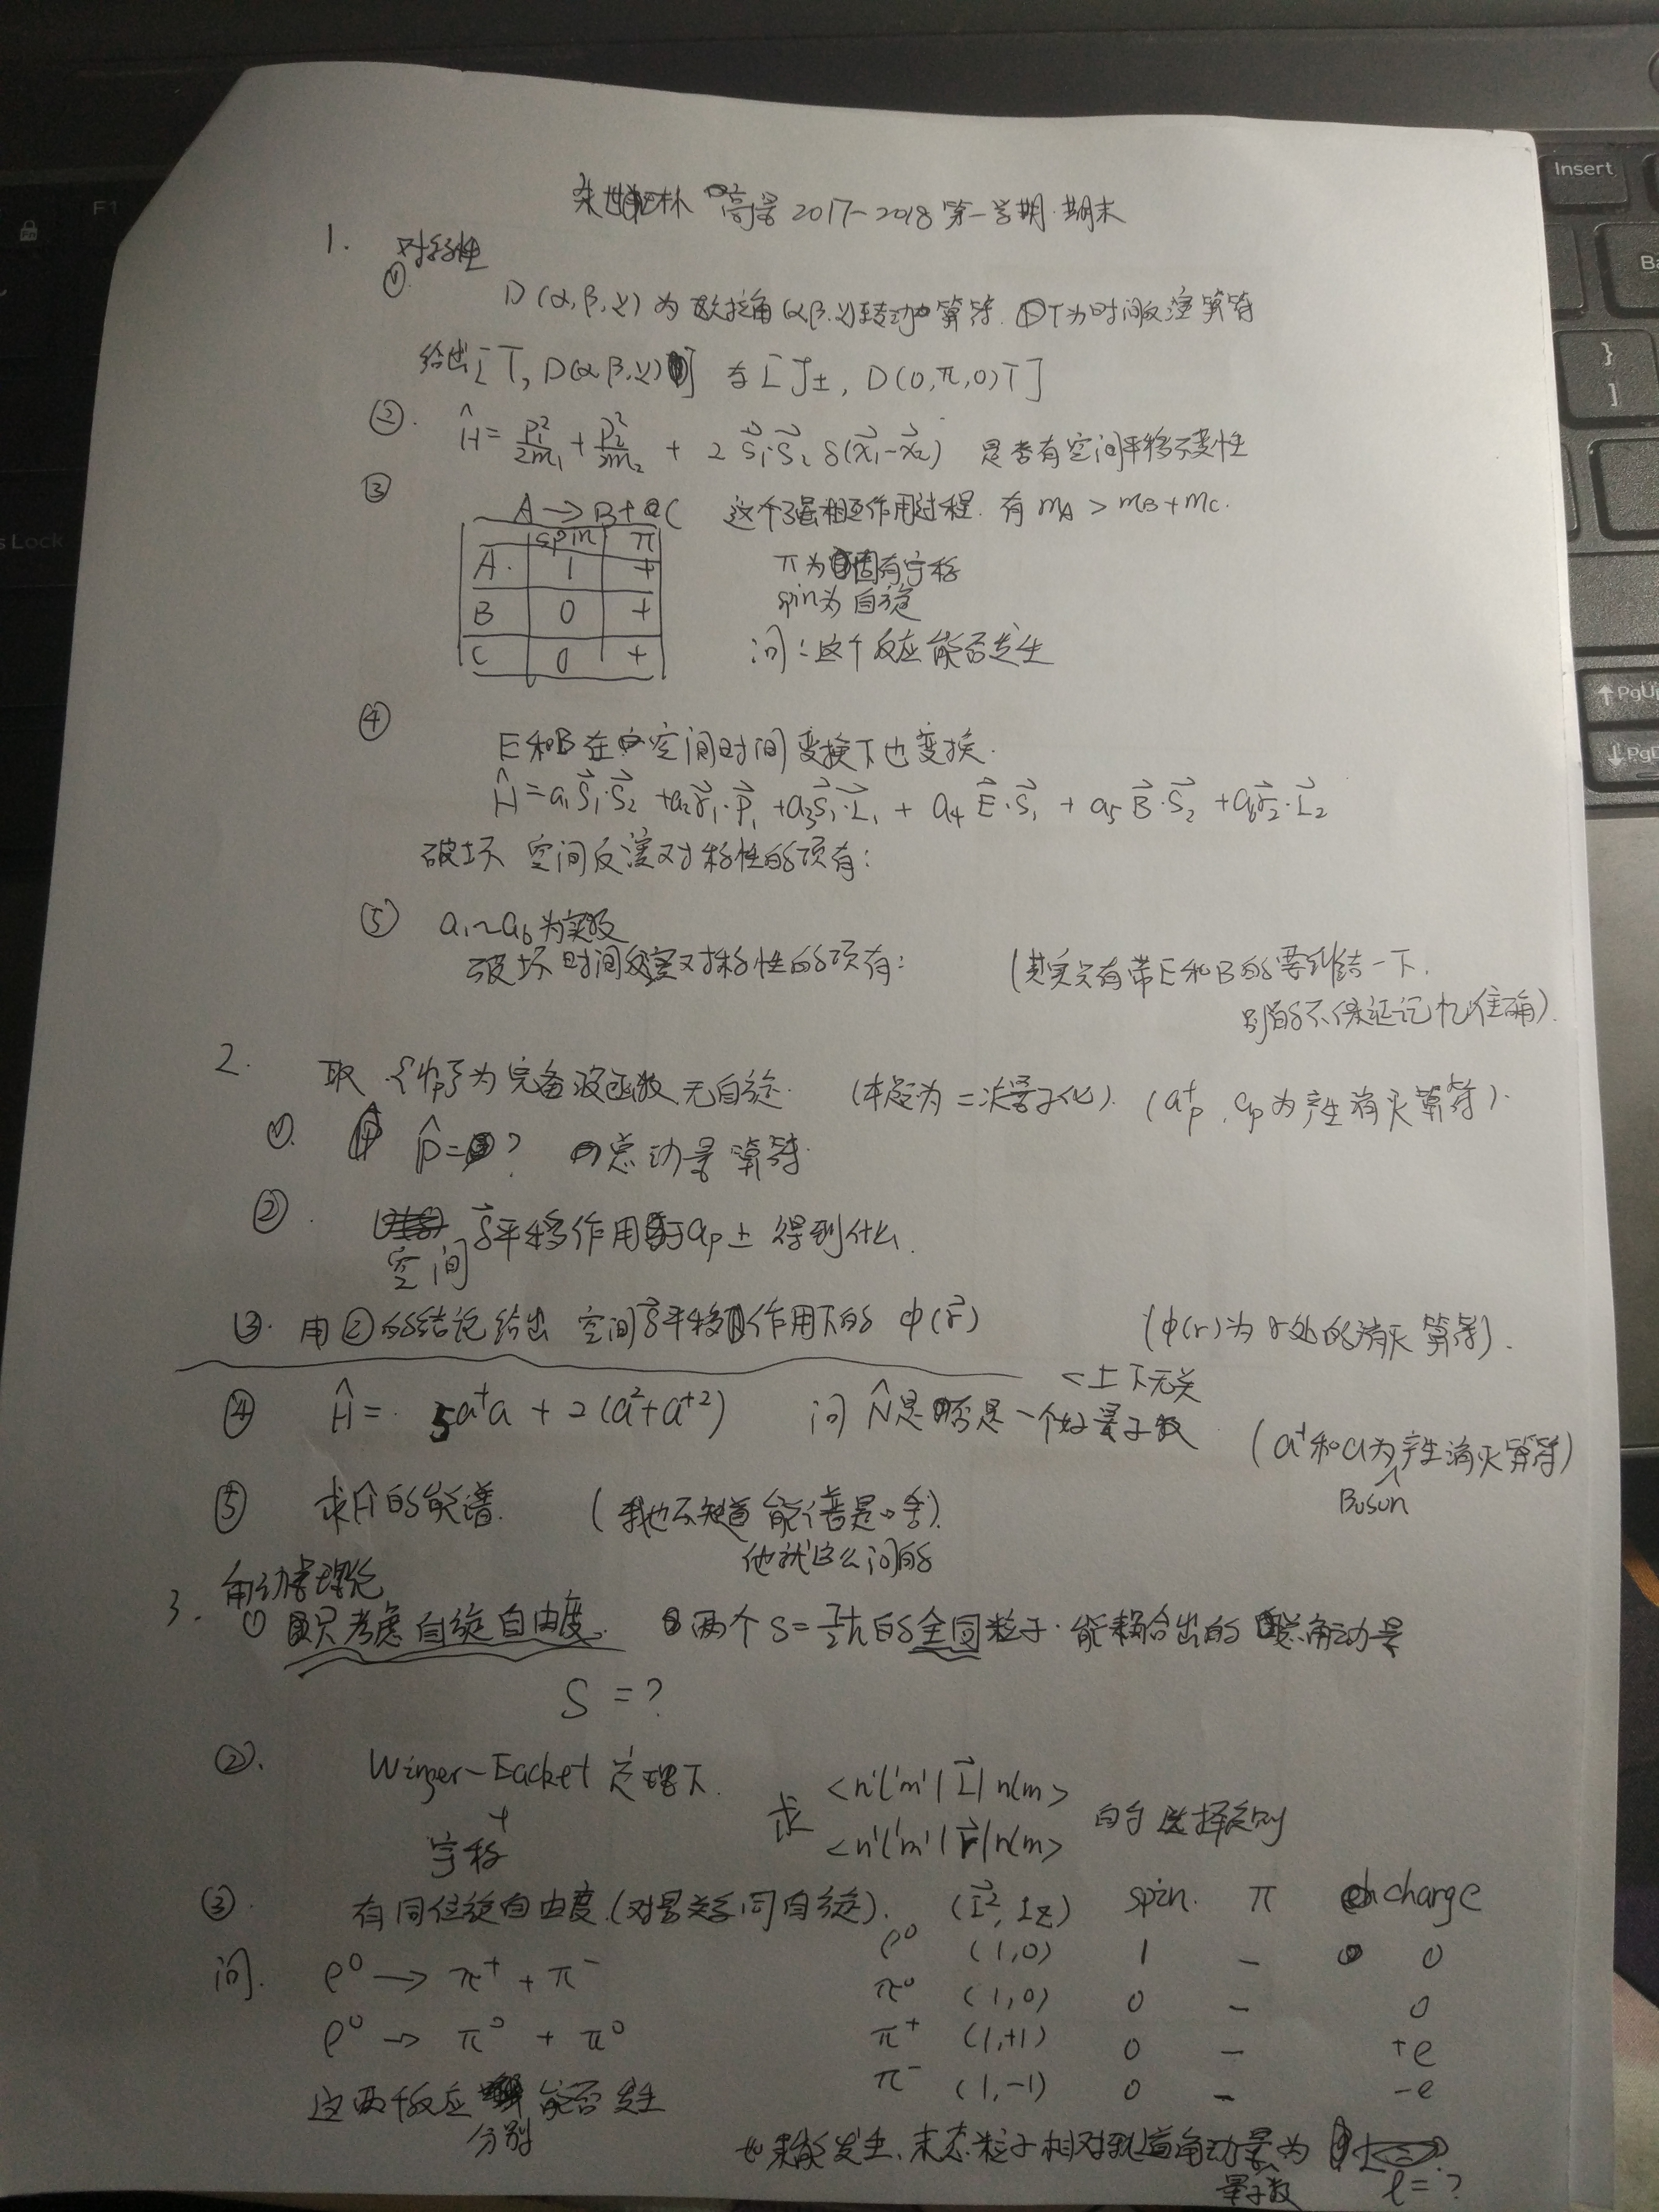 朱世琳 高量 2017-2018 第一学期·期末
1. 对称性
① D(α,β,γ) 为欧拉角(α,β,γ)转动算符. T为时间反演算符
给出[T, D(α,β,γ)] 与 [J±, D(0,π,0)T]
② Ĥ = P₁²/2m₁ + P₂²/2m₂ + 2 S⃗₁·S⃗₂ δ(x⃗₁-x⃗₂) 是否有空间平移不变性
③ A → B + C 这个强相互作用过程. 有 mA > mB + mC.
spin π
A. 1 +
B 0 +
C 0 +
π为固有宇称
spin为自旋
问:这个反应能否发生
④ E和B在空间时间变换下也变换.
Ĥ = a₁S⃗₁·S⃗₂ + a₂r⃗₁·P⃗₁ + a₃S⃗₁·L⃗₁ + a₄E⃗·S⃗₁ + a₅B⃗·S⃗₂ + a₆r⃗₂·L⃗₂
破坏 空间反演对称性的项有:
⑤ a₁~a₆为实数
破坏时间反演对称性的项有:
(其实只有带E和B的要纠结一下.
别的不保证记忆准确).
2. 取 {ψp}为完备波函数,无自旋. (本题为二次量子化). (a⁺p, ap为产生消灭算符).
① P̂=? 总动量算符.
② 空间 δ⃗平移作用于ap± 得到什么.
③. 用②的结论给出 空间δ⃗平移作用下的 φ(r⃗) (φ(r)为r处的消灭算符).
<上下无关
④ Ĥ = 5a⁺a + 2(a²+a⁺²) 问N̂是否是一个好量子数
(a⁺和a为产生消灭算符)
Boson
⑤ 求Ĥ的能谱. (我也不知道能谱是啥).
他就这么问的
3. 角动量理论
① 只考虑自旋自由度. 两个S=7/2ħ的全同粒子.能耦合出的总角动量
S = ?
②. Winger-Eacket 定理下. 求 <n'l'm'|L⃗|nlm>
+
宇称
<n'l'm'|r⃗|nlm> 的选择定则
③. 有同位旋自由度.(对易关系同自旋). (I⃗², Iz) spin. π charge
ρ⁰ (1,0) 1 - 0
π⁰ (1,0) 0 - 0
π⁺ (1,+1) 0 - +e
π⁻ (1,-1) 0 - -e
问. ρ⁰ → π⁺ + π⁻
ρ⁰ → π⁰ + π⁰
这两个反应 能否发生
分别
如果能发生,末态粒子相对轨道角动量为
量子数 l=?
Insert
F1
Fn
Lock
Ba
}
]
↑PgU
↓PgD